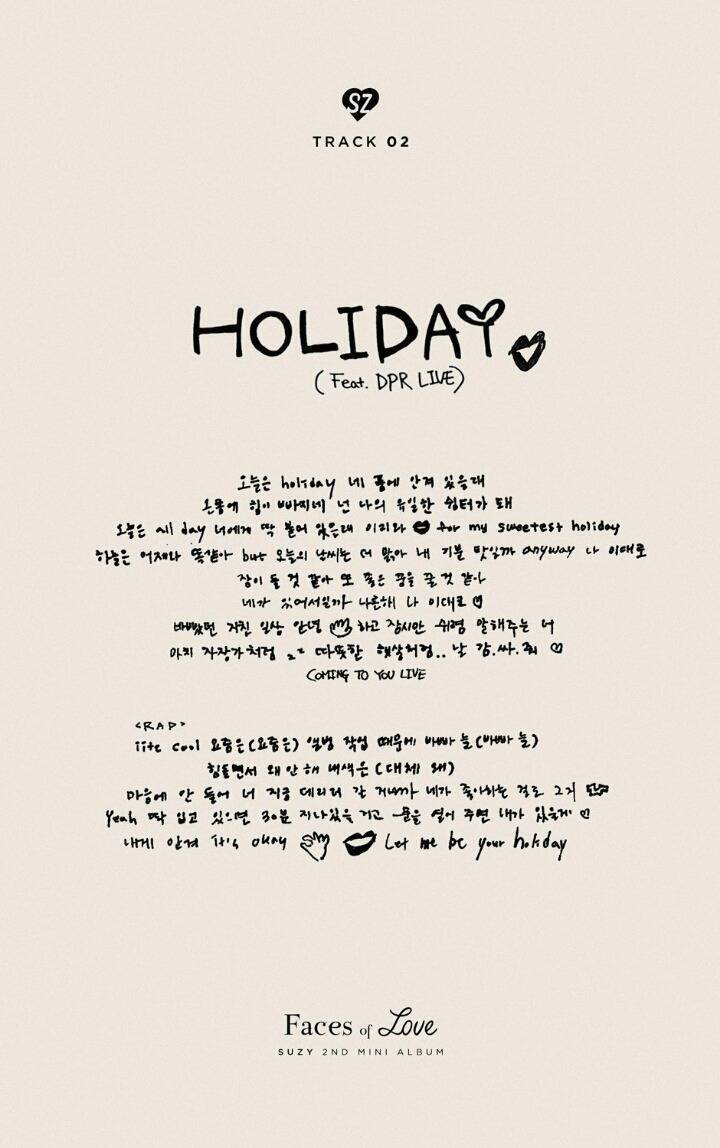 SZ
TRACK 02
HOLIDAY
(Feat. DPR LIVE)
오늘은 holiday 네 품에 안겨 있을래
온몸에 힘이 빠지네 넌 나의 유일한 쉼터가 돼
오늘은 all day 너에게 딱 붙어 있을래 이리와 for my sweetest holiday
하늘은 어제와 똑같아 but 오늘의 날씨는 더 맑아 내 기분 탓일까 anyway 나 이대로
잠이 들 것 같아 또 좋은 꿈을 꿀 것 같아
네가 있어서일까 나른해 나 이대로
바빴던 지친 일상 안녕 하고 잠시만 쉬렴 말해주는 너
마치 자장가처럼 zz 따뜻한 햇살처럼.. 날 감.싸.줘
COMING TO YOU LIVE
<RAP>
iite cool 요즘은(요즘은) 앨범 작업 때문에 바빠 늘(바빠 늘)
힘들면서 왜 안 해 내색은 (대체 왜)
마음에 안 들어 너 지금 데리러 갈 거니까 네가 좋아하는 걸로 그거
Yeah 딱 입고 있으면 30분 지나있을 거고 문을 열어 주면 내가 있을게
내게 안겨 it's okay Let me be your holiday
Faces of Love
SUZY 2ND MINI ALBUM